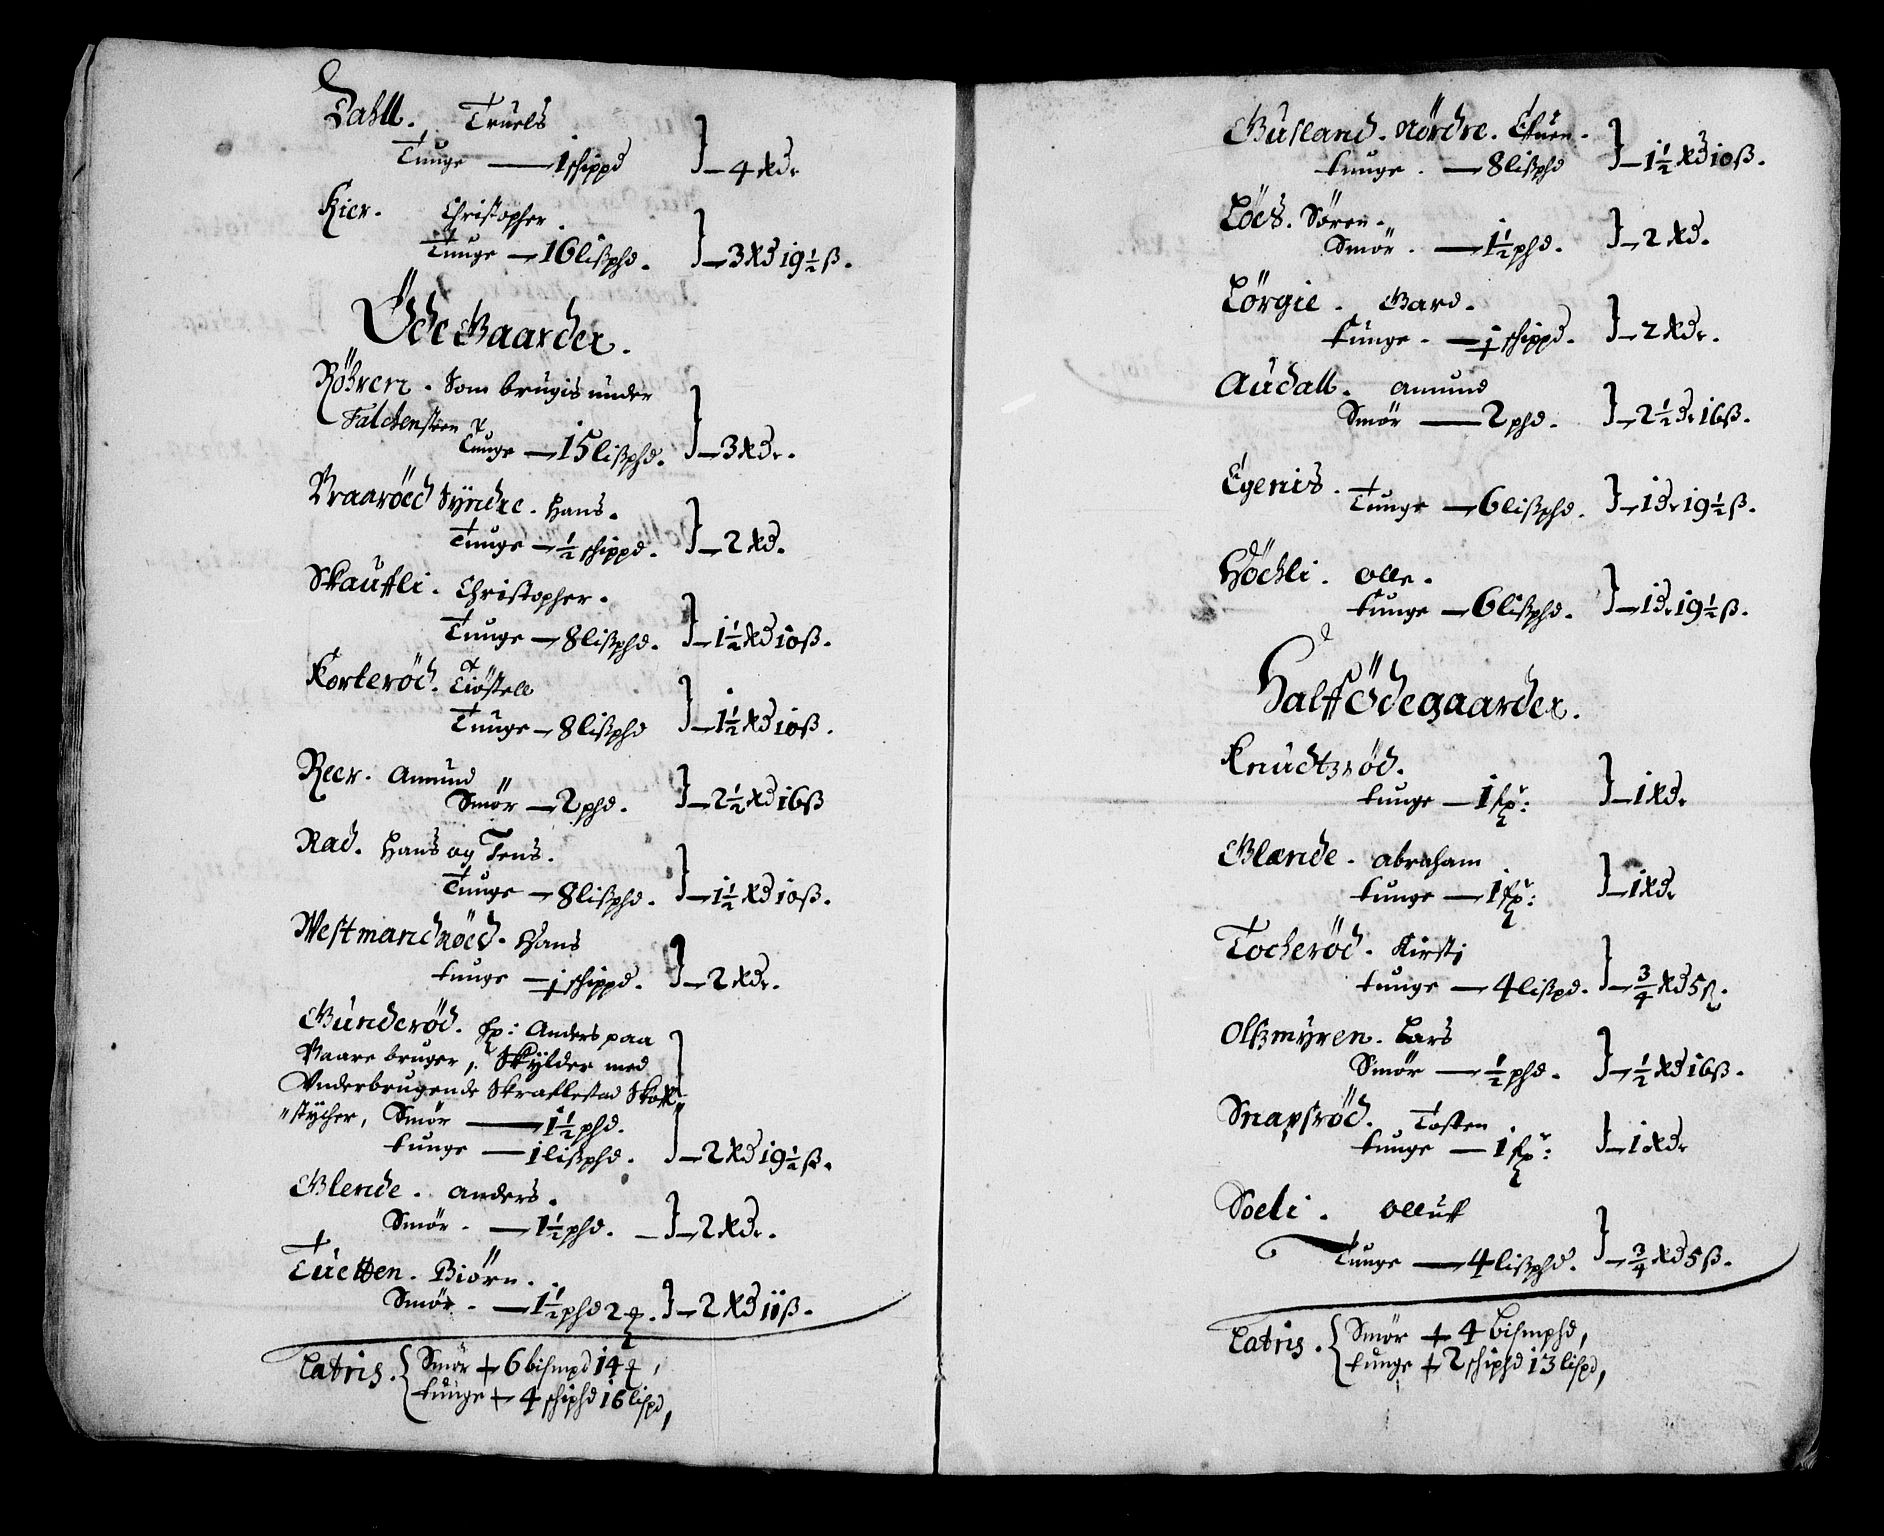 Dahll. Truels
Tunge — 1 schippd }— 4 Rdr
Kier. Christopher.
Tunge — 16 lißphd. }— 3 Rd 19½ ß.
Öde Gaarder.
Röhren. Som brugis under
Falckensteen
Tunge — 15 lißphd. }— 3 Rdr.
Vraaröed Syndre. Hans.
Tunge — ½ schippd. }— 2 Rd.
Skauffli. Christopher.
Tunge — 8 lißphd. }— 1½ Rd 10 ß.
Korteröd. Tiöstell
Tunge — 8 lißphd }— 1½ Rd 10 ß.
Reer. Amund
Smör — 2 phd. }— 2½ Rd 16 ß
Rad. Hans og Jens.
Tunge — 8 lißphd. }— 1½ Rd 10 ß.
Westmandröed. Hans
tunge — ½ schippd. }— 2 Rdr.
Gunderöd. Anders paa
Vaare bruger, Skylder med
Vnderbrugende Skraffvestad Skoff
"stycher, Smör — 1½ phd.
tunge — 1 lißphd. }— 2 Rd 19½ ß.
Glende. anders.
Smör. — 1½ phd. — }— 2 Rdr.
Tuetten. Biörn.
Smör. — 1½ phd 2 }— 2 Rd 11 ß.
Latris. { Smör + 6 bismpd 14
tunge + 4 schiphd 16 lispd,
Gusland. Nördre. Effuen.
tunge. — 8 lißphd }— 1½ Rd 10 ß.
Löes. Sören.
Smör. — 1½ phd. }— 2 Rd.
Lörgie. Gard.
tunge. — ½ schippd. }— 2 Rdr.
Audall. Amund
Smör — 2 phd. }— 2½ dr 16 ß.
Egenis.
Tunge — 6 lißphd. }— 1 dr 19½ ß.
Höchli. Olle.
tunge — 6 lißphd. }— 1 dr 19½ ß.
Halff Ödegaarder.
Knudtzröd.
tunge — 1 fpr: }— 1 Rdr
Glænde. abraham
tunge — 1 fpr: }— 1 Rdr
Tocheröd. Kirsti
tunge — 4 lißpd. }— ¾ Rd 5 ß.
Olßmyren. Lars
Smör — ½ phd. }— ½ Rd 16 ß.
Snapsröd. Tosten
tunge — 1 fpr: }— 1 Rdr
Soeli. Olluff
Tunge — 4 lißphd. }— ¾ Rd 5 ß.
Latris. { Smör + 4 bismphd,
tunge + 2 schiphd 13 lispd,